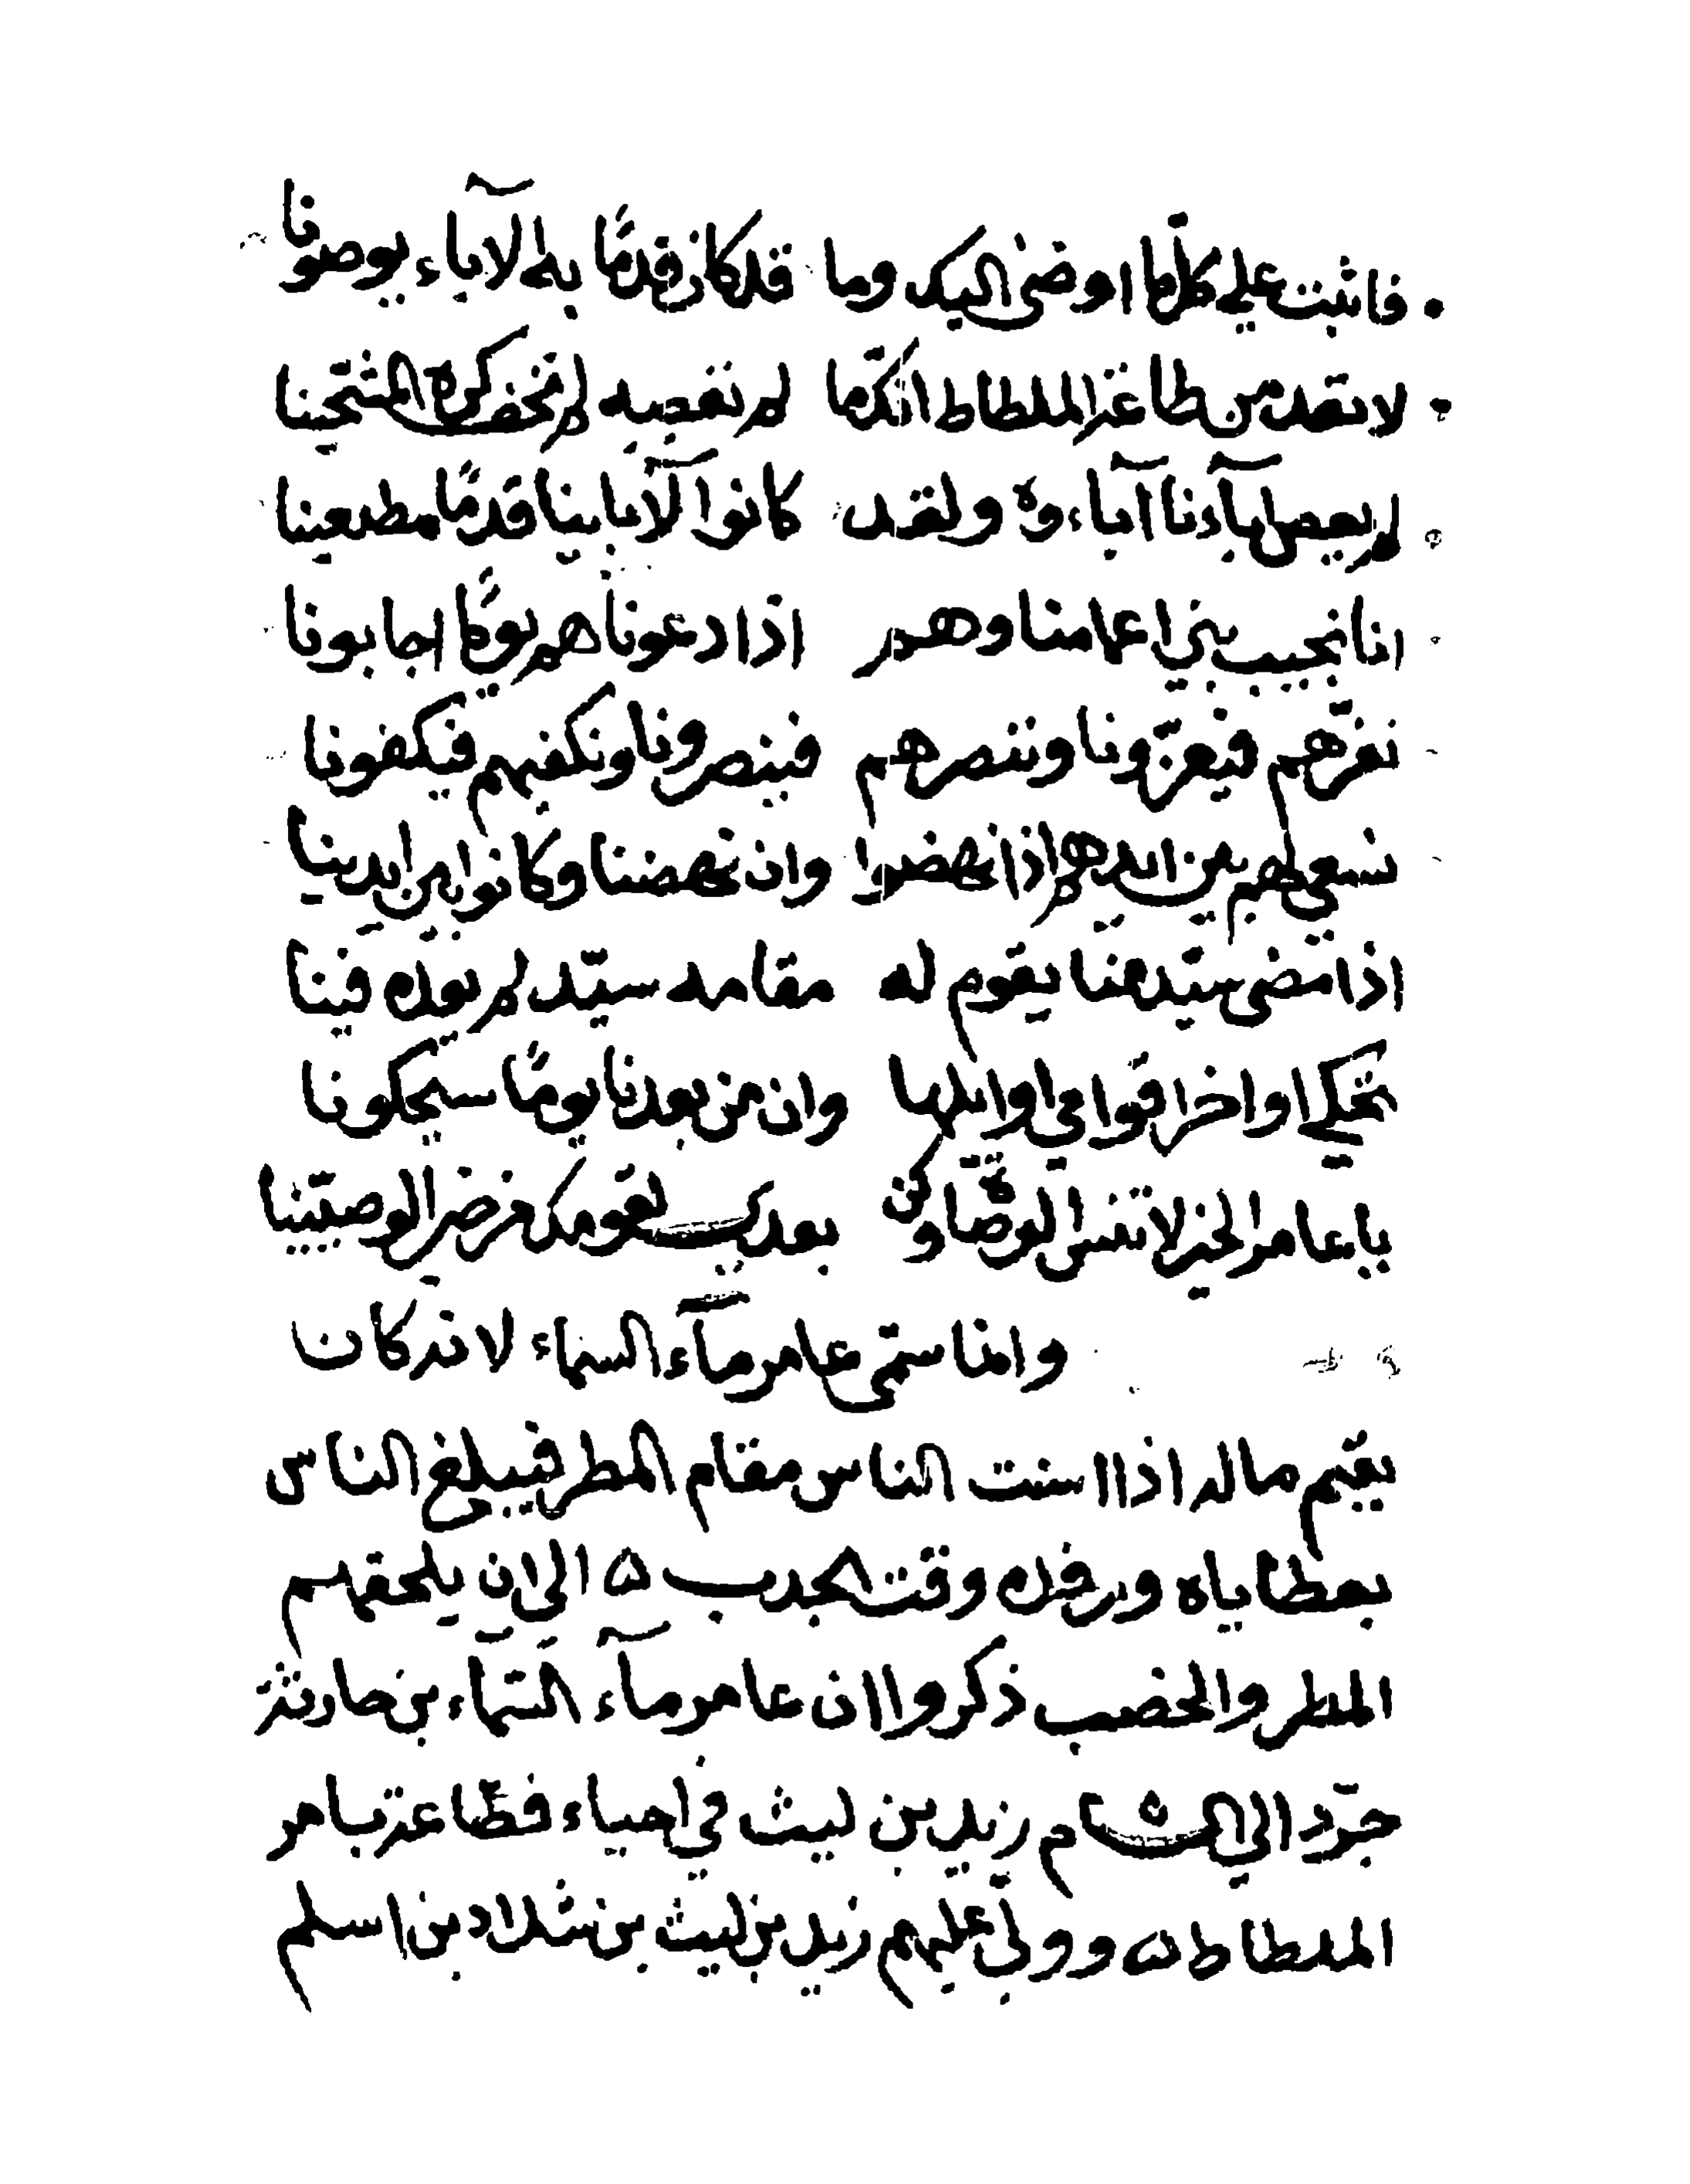 فاثبت على كل ما اوصى اليك وما قد كان قدمًا به الآباء يوصونا
لا تعد من طاعة الملطاط انكما لم تعصيه لم نخف كره المشتحينا
لم يعص آباءنا آباءوه ولقد كانوا لآبائنا قدمًا مطيعينا
انا نجيب بني اعمامنا وهم اذا دعوناهم يومًا اجابونا
نعزهم فيعزونا وننصرهم فينصرونا ونكفيهم فيكفونا
نسعى لهم بين ايديهم اذا نهضوا وان نهضنا وكانوا بين ايدينا
اذا مضى سيد منا يقوم له مقامه سيد لم يوذه فينا
نحكي اواخر اقوامي اوايلها وان من بعدنا يومًا سيحكونا
يا عامر الخير لا تنسى الوصاة وكن بعدي لقومك من خير الوصيينا
وانما سمي عامر مآء السماء لانه كان
يقيم ماله اذا اسنت الناس مقام المطر فيبلغ الناس
بعطاياه ورفده وقت الجدب ۵ الى ان يلحقهم
المطر والخصب ذكروا ان عامر مآء السّماء بن حارثة
جرّد الى الشام زيد بن ليث في احياء قضاعة بامر
الملطاط ۵ وولى عليهم زيد بن ليث بن سود بن اسلم